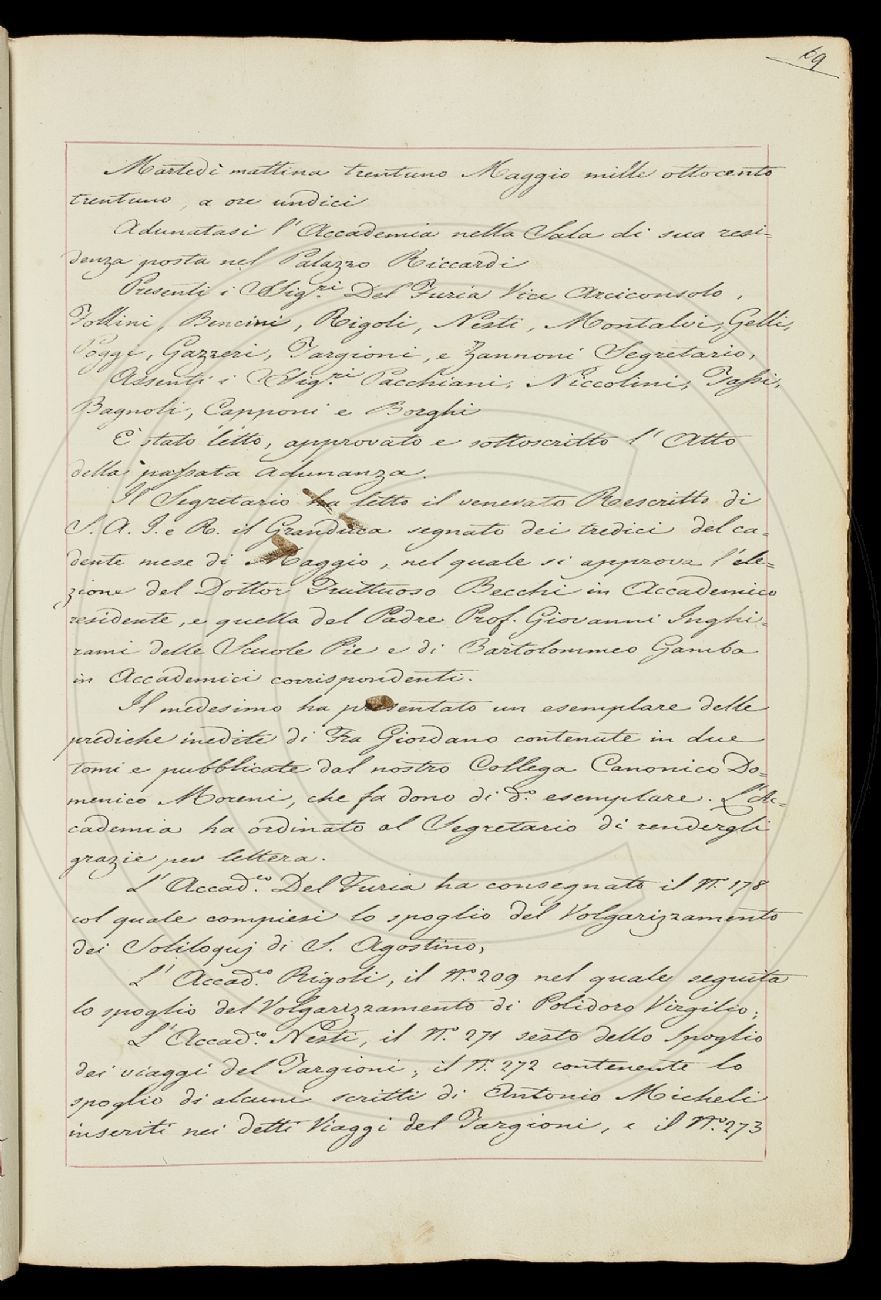 69
Martedì mattina trentuno Maggio mille ottocento
trentuno, a ore undici
Adunatasi l'Accademia nella Sala di sua resi-
denza posta nel Palazzo Riccardi
Presenti i SSig.ri Del Furia Vice Arciconsolo,
Follini, Bencini, Rigoli, Nesti, Montalvi, Gelli,
Poggi, Gazzeri, Targioni, e Zannoni Segretario,
Assenti i SSig.ri Pacchiani, Niccolini, Tassi,
Bagnoli, Capponi e Borghi
E' stato letto, approvato e sottoscritto l'Atto
della passata adunanza.
Il Segretario ha letto il venerato Rescritto di
S. A. I. e R. il Granduca segnato dei tredici del ca-
dente mese di Maggio, nel quale si approva l'ele-
zione del Dottor Fruttuoso Becchi in Accademico
residente, e quella del Padre Prof. Giovanni Inghi-
rami delle Scuole Pie e di Bartolommeo Gamba
in Accademici corrispondenti.
Il medesimo ha presentato un esemplare delle
prediche inedite di Fra Giordano contenute in due
tomi e pubblicate dal nostro Collega Canonico Do-
menico Moreni, che fa dono di d.o esemplare. L'Ac-
cademia ha ordinato al Segretario di rendergli
grazie per lettera.
L'Accad.co Del Furia ha consegnato il N.o 178
col quale compiesi lo spoglio del Volgarizzamento
dei Soliloquj di S. Agostino,
L'Accad.co Rigoli, il N.o 209 nel quale seguita
lo spoglio del Volgarizzamento di Polidoro Virgilio;
L'Accad.co Nesti, il N.o 271 sesto dello Spoglio
dei viaggi del Targioni; il N.o 272 contenente lo
spoglio di alcuni scritti di Antonio Micheli
inseriti nei detti Viaggi del Targioni, e il N.o 273